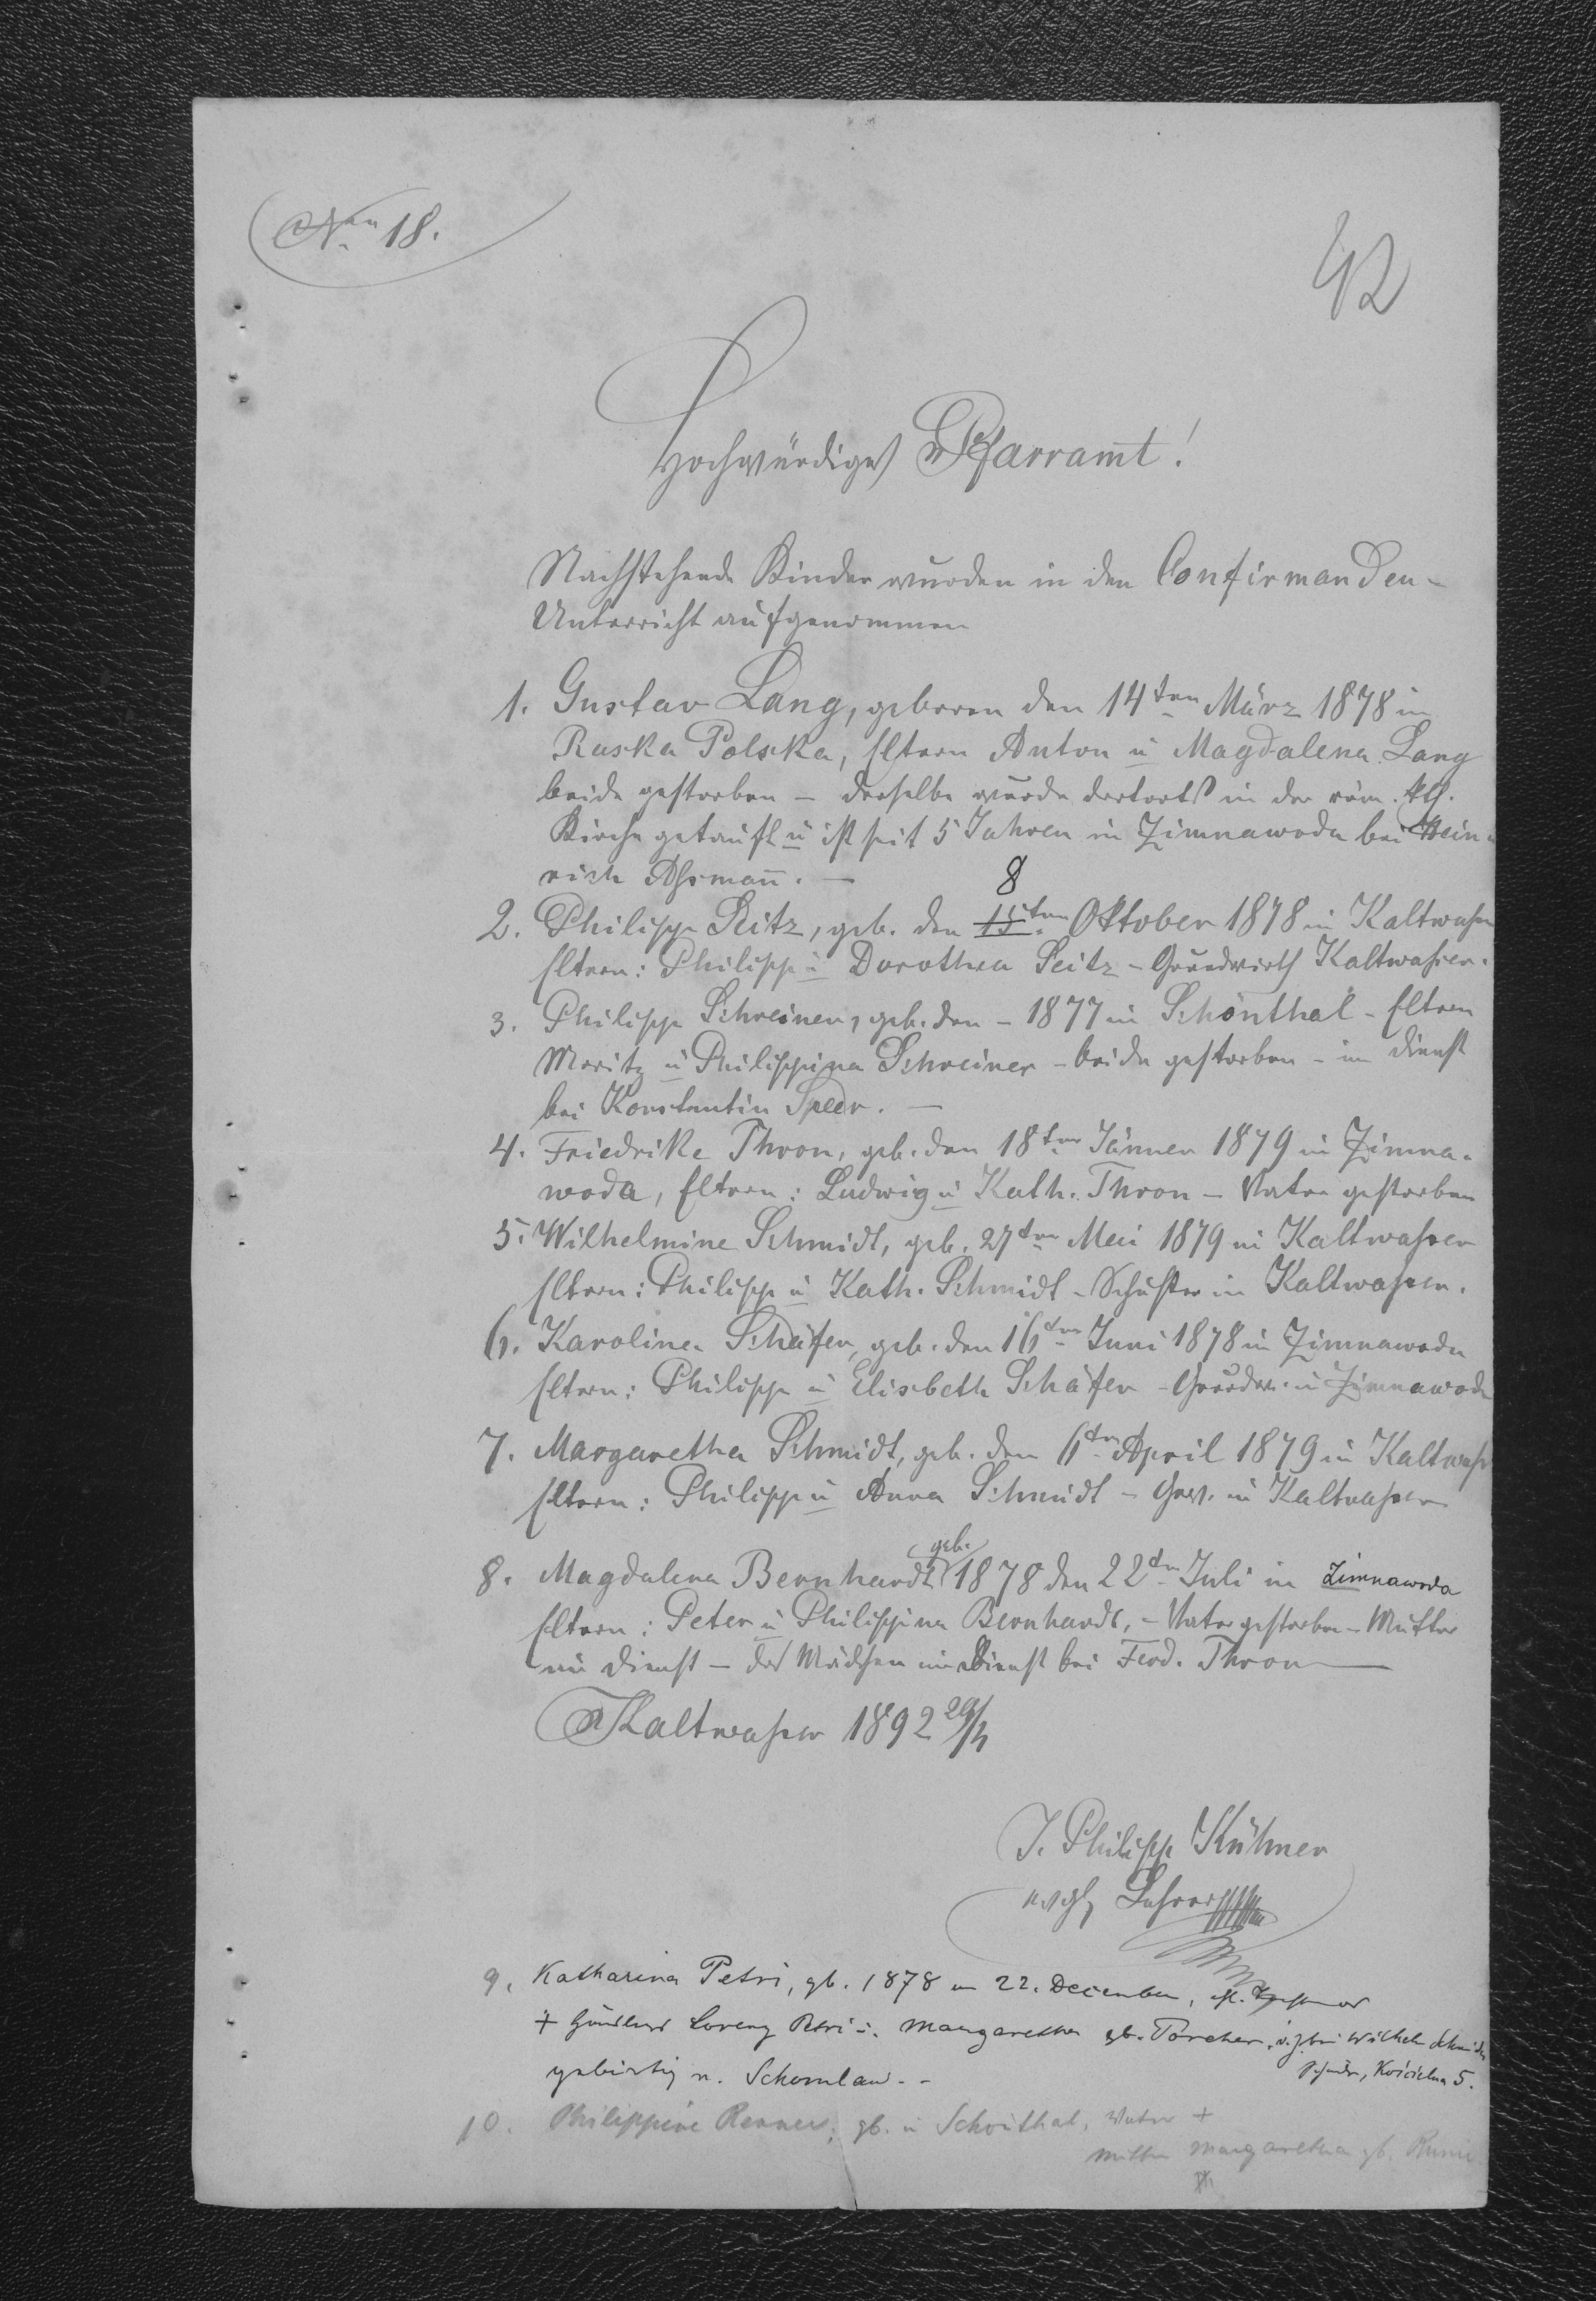 Nrn 18.
42
Hochwürdiges Pfarramt!
Nachstehende Kinder wurden in den Confirmanden-
Unterricht aufgenommen
1. Gustav Lang, geboren den 14ten März 1878 in
Ruska Polska, Eltern Anton u Magdalena Lang
beide gestorben – derselbe wurde dortorts in der röm. kth.
Kirche getauft u ist seit 5 Jahren in Zimnawoda bei Hein-
rich Aßmañ. —
8
2. Philipp Seitz, geb. den 15ten Oktober 1878 in Kaltwaßer
Eltern: Philipp u Dorothea Seitz – Grundwirth Kaltwaßer.
3. Philipp Schreiner, geb. den – 1877 in Schönthal – Eltern
Moritz u Philippina Schreiner – beide gestorben – im Dienst
bei Konstantin Speer. —
4. Friedrike Thron, geb. den 18ten Jänner 1879 in Zimna-
woda, Eltern: Ludwig u Kath. Thron – Vater gestorben
5. Wilhelmine Schmidt, geb. 27ten Mai 1879 in Kaltwaßer
Eltern: Philipp u Kath. Schmidt – Schuster in Kaltwaßer.
6. Karolina Schäfer, geb. den 16ten Juni 1878 in Zimnawoda
Eltern: Philipp u Elisbeth Schäfer – Grundw. in Zimnawoda
7. Margaretha Schmidt, geb. den 6ten April 1879 in Kaltwaß
Eltern: Philipp u Anna Schmidt – in Kaltwaßer
geb.
8. Magdalena Bernhardt 1878 den 22ten Juli in Zimnawoda
Eltern: Peter u Philippina Bernhardt, – Vater gestorben – Mutter
im Dienst – das Mädchen im Dienst bei Ferd. Thron —
Kaltwaßer 1892 29/
J. Philipp Kühner
evgl. Lehrer
9. Katharina Petri, gb. 1878 am 22. December,
+ Lorenz Petri u. Margaretha gb. Porcher, bei Wilhelm Schneider
gebürtig n. Schomlau. - -
5.
10. Philippine Renner, gb. in Schönthal, Vater +
Mutter Margaretha gb.